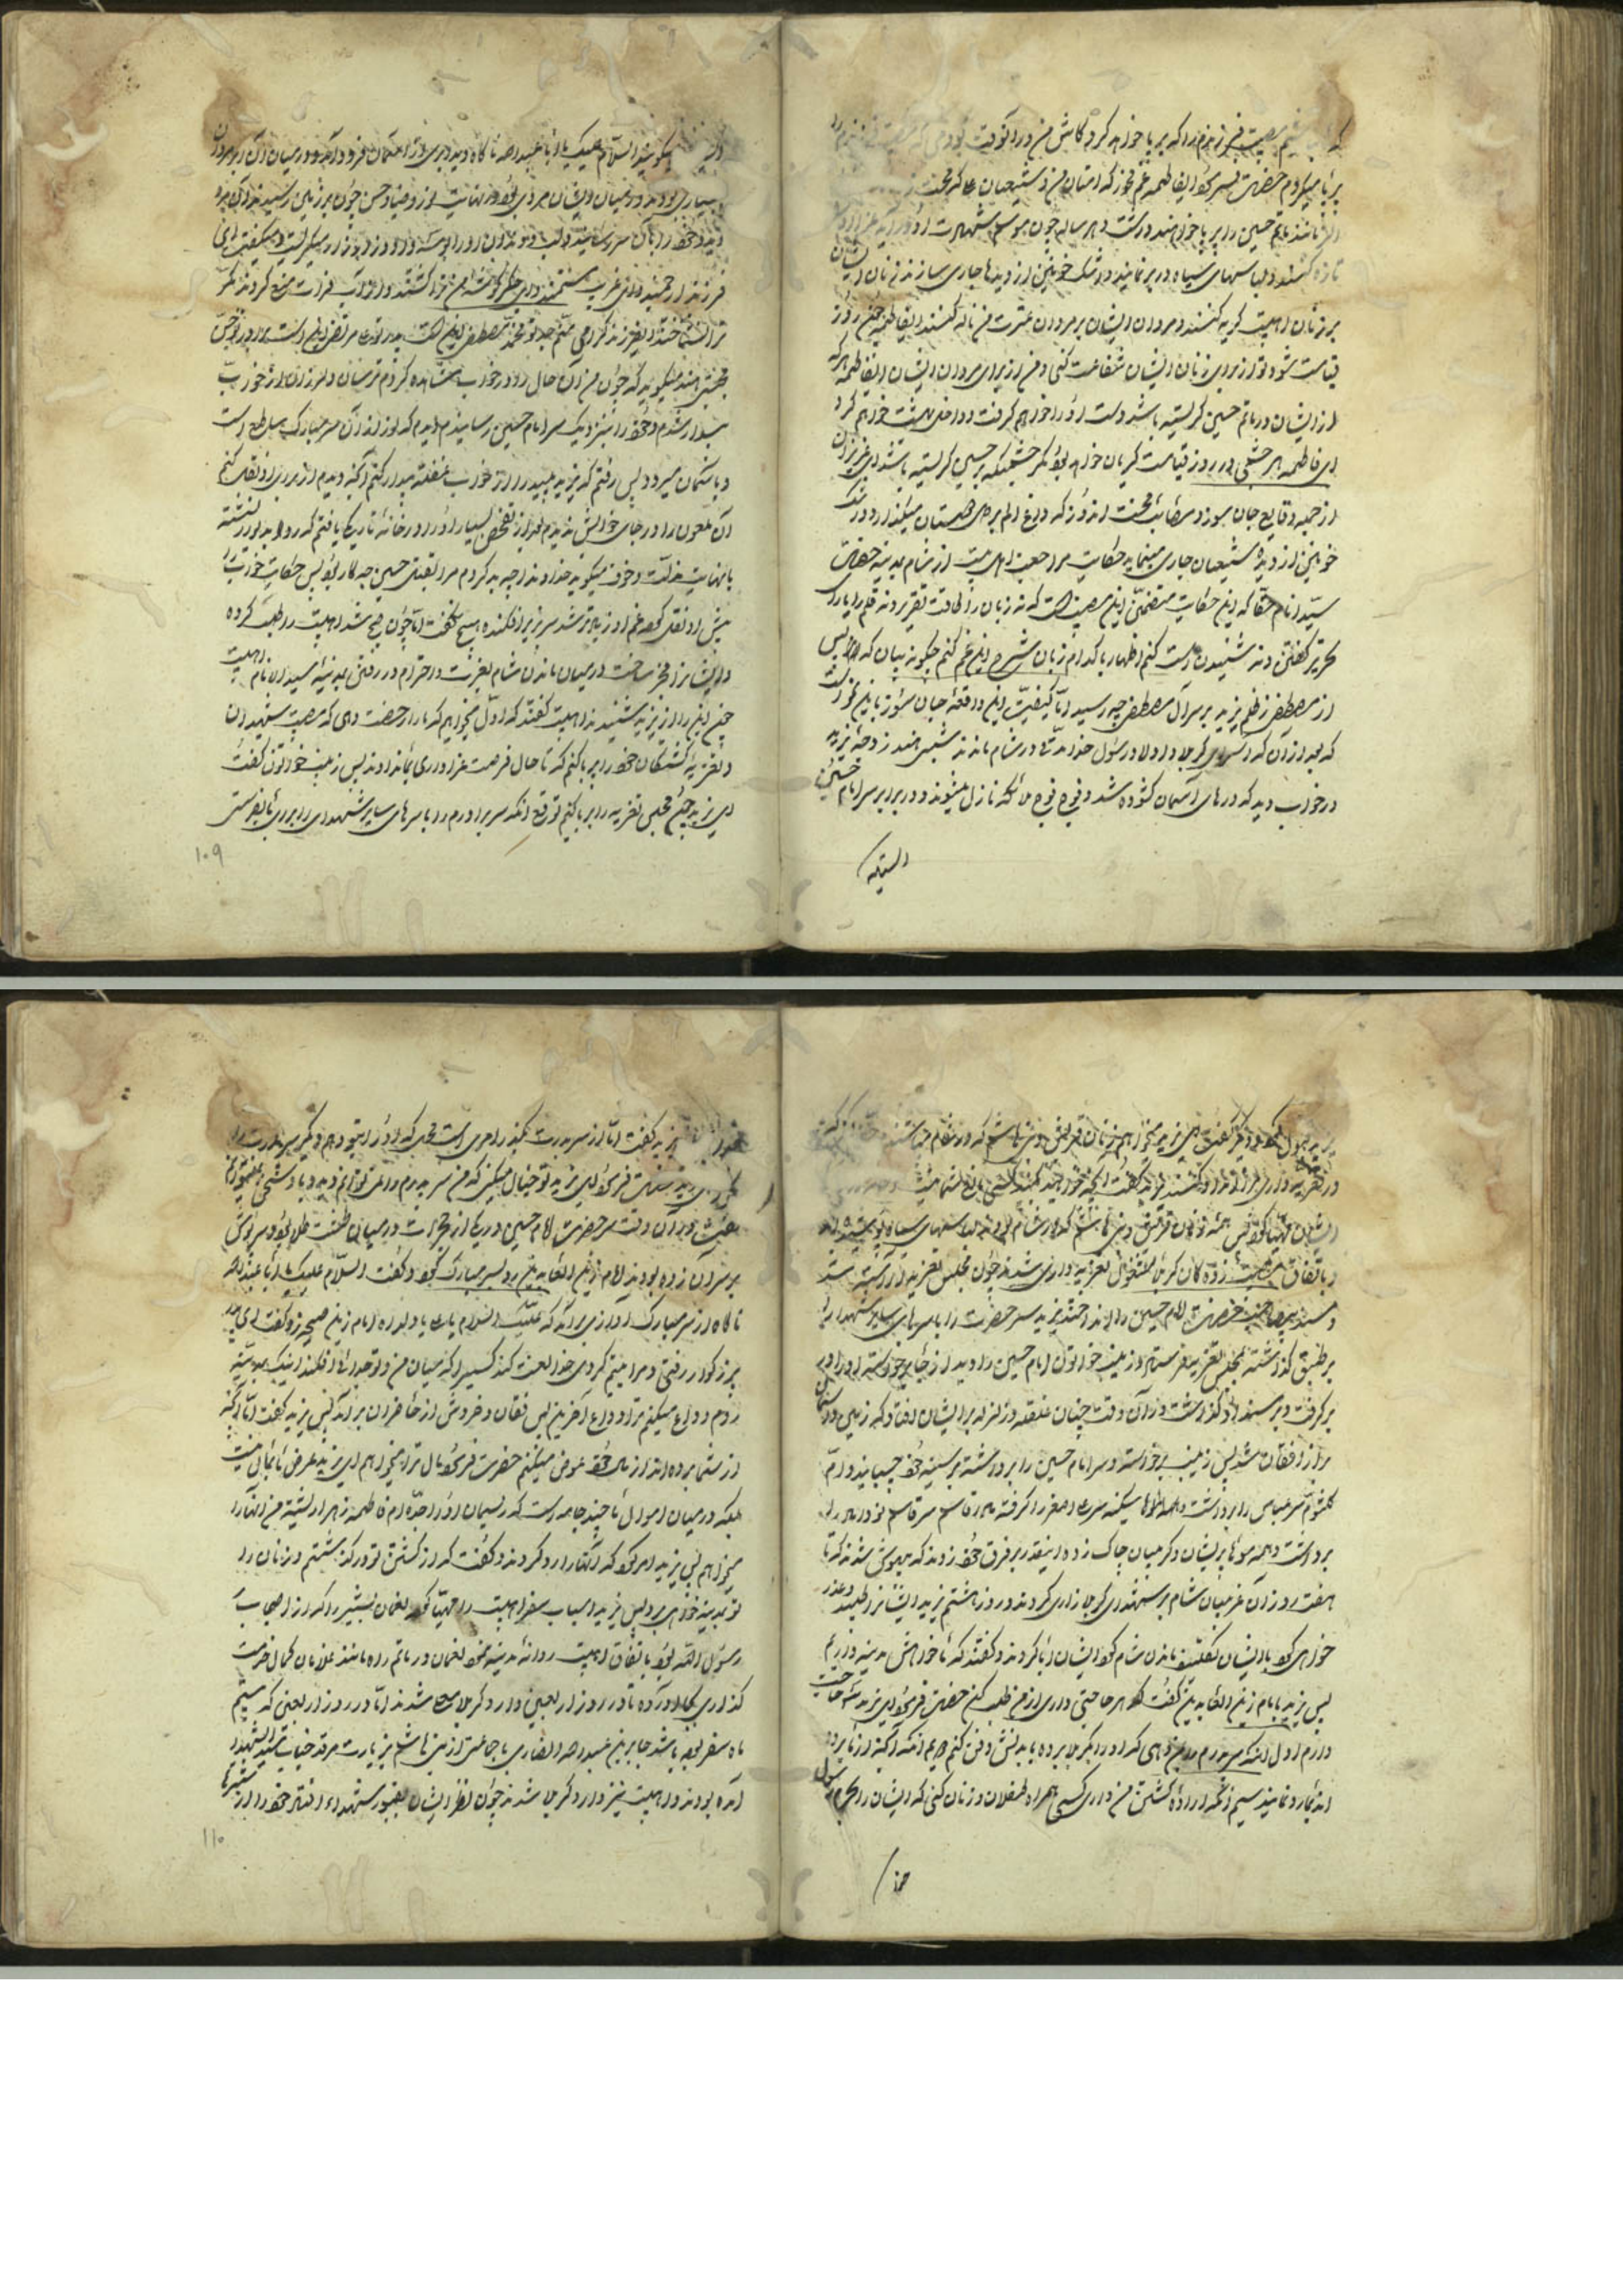 مصیبت فرزندم را که بر پا خواهد کرد کاش من در آنوقت بودمی که
بر پا میکردم حضرت پس گفت ایفاطمه غم مخور که امتان من و شیعیان ما که محبت
ماتم حسین را بر پا خواهند داشت و هر ساله چون موسم شهادت او در آید عزا
تازه کنند و لباسهای سیاه در بر نمایند و اشک خونین از دیدها جاری سازند زنان ایشان
بر زنان اهلبیت گریه کنند و مردان ایشان بر مردان عترت من ناله کنند ایفاطمه چون روز
قیامت شود تو از برای زنان ایشان شفاعت کنی و من از برای مردان ایشان ایفاطمه هر که
از ایشان در ماتم حسین گریسته باشد دست او را خواهم گرفت و داخل بهشت خواهم کرد
ای فاطمه هر چشمی در روز قیامت گریان خواهد بود مگر چشمیکه بر حسین گریسته باشد ای عزیزان
از جمله وقایع جان سوز و مصائب محنت اندوز که داغ الم بر دل دوستان میگذارد و اشک
خونین از دیدۀ شیعیان جاری مینماید حکایت مراجعت اهل بیت از شام بمدینه حضرت
سید انام حقا که این حکایت متضمن این مصیبت است که نه زبان را طاقت تقریر و نه قلم را یارای
تحریر گفتن و نه شنیدن است کنم اظهار با کدام زبان شرح این غم کنم چگونه بیان که از پس
از مصطفی ز ظلم یزید بر سر آل مصطفی چه رسید اما کیفیت این واقعۀ جان سوز باین نحو است
که بعد از آن که اسرای کربلا و اولاد رسول خدا مدتی در شام ماندند شبی هند زوجۀ یزید
در خواب دید که درهای آسمان گشوده شد و فوج فوج ملائکه نازل میشوند و در برابر سر امام حسین
ایستاده
میگویند السلام علیک یا ابا عبد الله ناگاه دید ابری از آسمان فرود آمد و در میان آن ابر مردان
بسیاری بودند و در میان ایشان مردی بود در نهایت نور و ضیا و حسن چون بر زمین رسیدند آن مرد
دوید و خود را بآن سر رسانید و لب و دندان او را بوسه داد و زار زار میگریست و میگفت ای
فرزند ارجمند و ای غریب مستمند و ای جگر گوشه من ترا کشتند و از آب فرات منع کردند مگر
ترا نشناختند ای فرزند گرامی منم جد تو محمد مصطفی این است پدر تو علی مرتضی این است برادر تو حسن
مجتبی هند میگوید که چون من آن حال را در خواب مشاهده کردم ترسان و لرزان از خواب
بیدار شدم و خود را بنزدیک سر امام حسین رسانیدم دیدم که نور از آن سر مبارک ساطع است
و بآسمان میرود پس رفتم که یزید پلید را از خواب غفلت بیدار کنم و آنچه دیدم از برای او نقل کنم
آن ملعون را در جای خوابش ندیدم بعد از تفحص بسیار او را در خانۀ تاریک یافتم که رو بدیوار نشسته
با نهایت مذلت و خوف میگوید خداوندا چه بد کردم مرا بقتل حسین چه کار بود پس حکایت خواب را
پیش او نقل کرد غم او زیادتر شد سر بزیر افکنده هیچ نگفت تا چون صبح شد اهلبیت را طلب کرده
و ایشان را مخیر ساخت در میان ماندن شام بعزت و احترام و رفتن بمدینه سید انام اهلبیت
چون این را از یزید شنیدند اهلبیت گفتند که اول میخواهیم که ما را رخصت دهی که مصیبت شهیدان
و تعزیۀ کشتگان خود را بر پا کنیم که تا حال فرصت عزاداری بما نداده‌اند پس زینب خاتون گفت
ای یزید چون مجلس تعزیه را بر پا کنیم توقع آنکه سر برادرم را با سرهای سایر شهدا برای ما بفرستی
۱۰۹
یزید قبول کرد و دیگر گفت ای یزید میخواهم زنان قریش و بنی هاشم که در شام هستند
در تعزیه داری شرکت کنند یزید گفت آنچه خواهید بکنید کسی مانع شما نیست
ایشان مهیا کرد پس همه زنان قریش و بنی هاشم که در شام بودند لباسهای سیاه پوشیده
و باتفاق مصیبت زده گان کربلا مشغول تعزیه داری شدند چون مجلس تعزیه آراسته شد
و مسند حضرت امام حسین را انداختند یزید سر حضرت را با سرهای سایر شهدا
بر طبق گذاشته بمجلس تعزیه فرستاد زینب خواتون امام حسین را دید از جای خواسته او را
بر گرفت و بر مسند گذاشت در آن وقت چنان غلغله و زلزله بر ایشان افتاد که زمین و آسمان
پر از فغان شد پس زینب برخواسته و سر امام حسین را برداشته بر سینه خود چسبانید و ام
کلثوم سر عباس را برداشت سکینه سر علی اصغر را گرفته مادر قاسم سر قاسم نو داماد را
برداشت و همه موها پریشان و گریبان چاک زده اینقدر بر فرق خود زدند که بیهوش شدند که تا
هفت روز آن غریبان شام بر شهدای کربلا زاری کردند و روز هشتم یزید ایشان را طلبید و عذر
خواهی کرد با ایشان تکلیف ماندن شام کرد ایشان ابا کردند و گفتند که ما خواهش مدینه داریم
پس یزید بامام زین العابدین گفت که هر حاجتی داری از من طلب کن حضرت فرمود ای یزید سه حاجت
دارم اول آنکه سر پدرم را بمن دهی که او را بکربلا برده با بدنش دفن کنم دویم آنکه آنچه از ما برده
اند بما رد نمایند سیم آنکه اگر ارادۀ کشتن من داری کسی همراه طفلان و زنان کنی که ایشان را بحرم رسول
خدا
یزید گفت اما از سر پدرت بگذر
حضرت فرمود ای یزید تو خیال میکنی که من سر پدرم را نمی توانم دید
در آن وقت سر حضرت امام حسین در یکی از حجرات در میان طشت طلا بود و سرپوش
بر سر آن زده بودند امام زین العابدین رو بسر مبارک کرد و گفت السلام علیک یا ابا عبد الله
ناگاه از سر مبارک آوازی بر آمد که علیک السلام یا ولداه امام زین صیحه زد و گفت ای پدر
بزرگوار رفتی و مرا یتیم کردی خدا لعنت کند کسیرا که میان من و تو جدائی افکند اینک بمدینه
روم و وداع میکنم ترا وداع آخرین پس فغان و خروش از حاضران بر آمد پس یزید گفت اما آنچه
از شما برده‌اند از مال خود عوض میکنم حضرت فرمود مال ترا نمیخواهم ای یزید غرض ما مال نیست
بلکه در میان اموال ما چند جامه‌ است که ریسمان او را جده‌ام فاطمه زهرا رشته من آنها را
میخواهم پس یزید امر کرد که آنها را رد کردند و گفت که از کشتن تو در گذشتم و زنان را
تو بمدینه خواهی برد پس یزید اسباب سفر اهلبیت را مهیا کرد نعمان بشیر را که از اصحاب
رسول الله بود باتفاق اهلبیت روانه مدینه نمود نعمان در تمام راه مانند غلامان کمال خدمت
گذاری بجا آورده تا در روز اربعین وارد کربلای معلی شدند اما در روز اربعین که بیستم
ماه صفر بوده باشد جابر بن عبد الله انصاری با جماعتی از بنی هاشم بزیارت مرقد جناب سید الشهدا
آمده بودند و اهلبیت نیز وارد کربلا شدند چون نظر ایشان بقبور شهدا افتاد خود را از شترها
۱۱۰